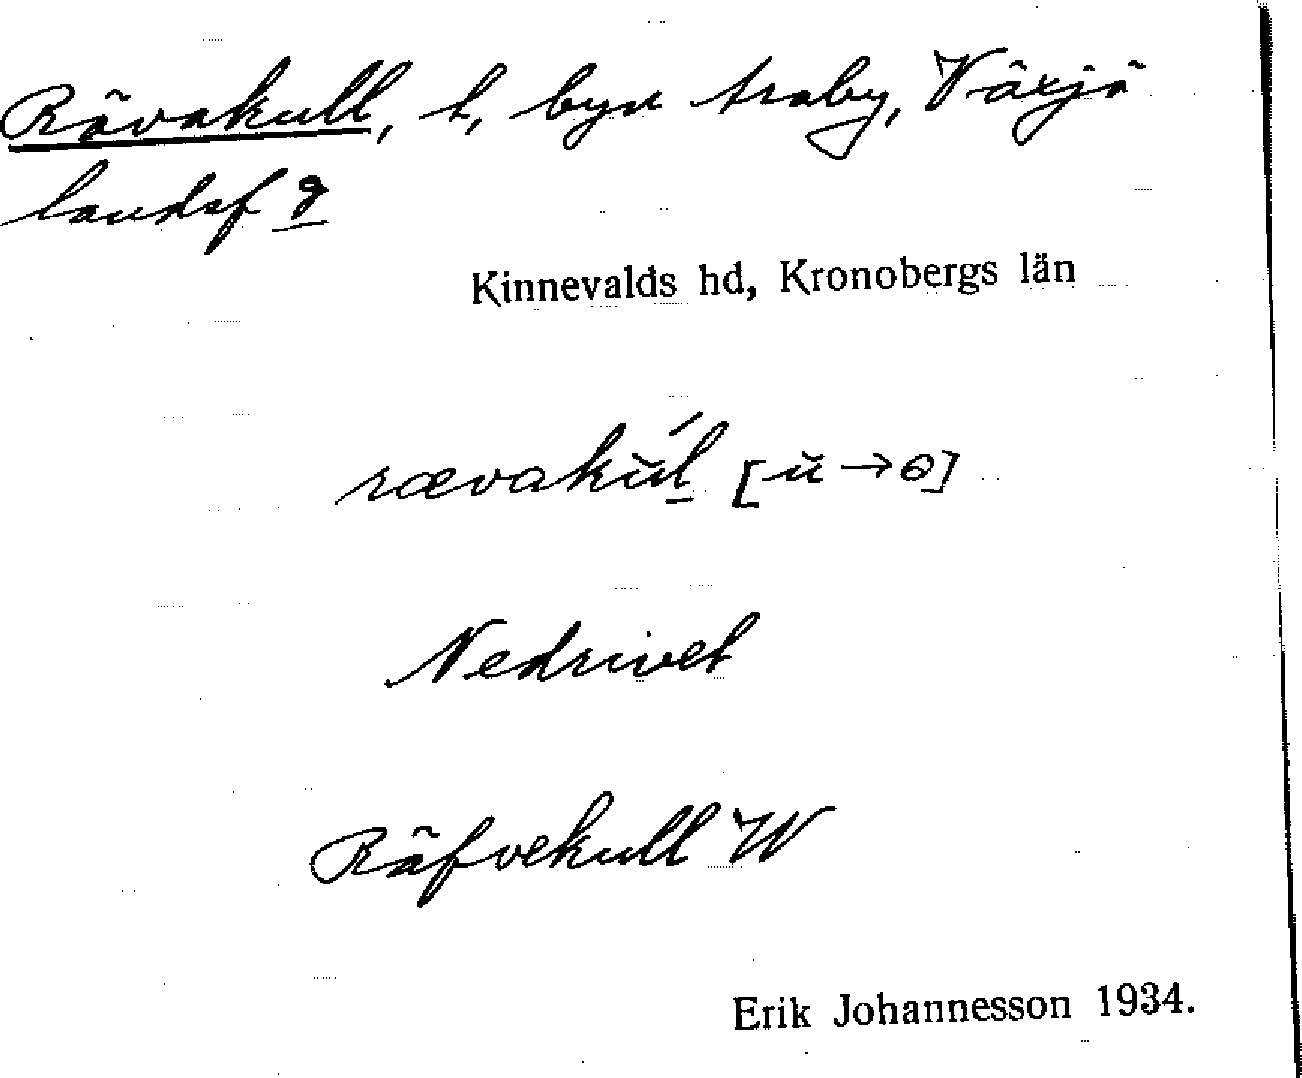 Rävakull, t, byn Araby, Växjö
landsf
Kinnevalds hd, Kronobergs län
rævakŭ́l [ŭ→ɵ]
Nedrivet
Räfvekull W
Erik Johannesson 1934.